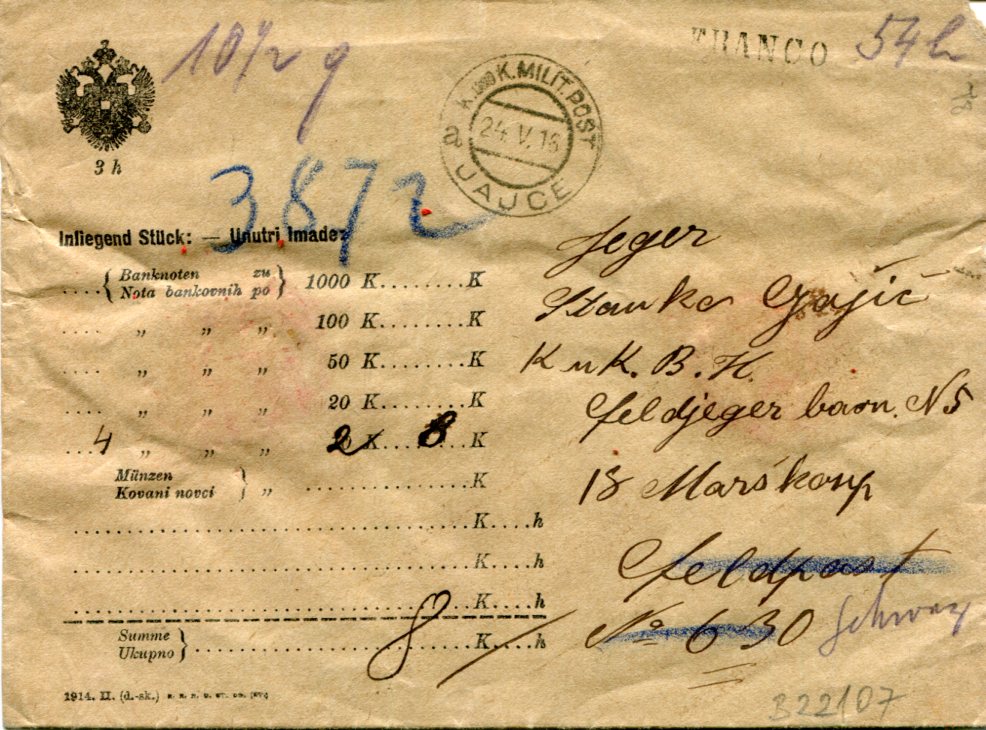 10 1/2 g
FRANCO 54 h
3 h
K. UND K. MILIT. POST
a 24. V. 16
JAJCE
3872
Inliegend Stück: — Unutri imade:
....{ Banknoten zu } 1000 K........K
Nota bankovnih po
.... „ „ „ 100 K........K
.... „ „ „ 50 K........K
.... „ „ „ 20 K........K
4 „ „ „ 2 K... 8 ..K
Münzen } „ ................K
Kovani novci
................K....h
................K....h
................K....h
Summe } 8 ....K....h
Ukupno
1914. II. (d.-sk.)
Jeger
Stanko Gajić
K u K. B. H.
Feldjeger baon. N5
18 Marškomp
Feldpost
No 630
322107